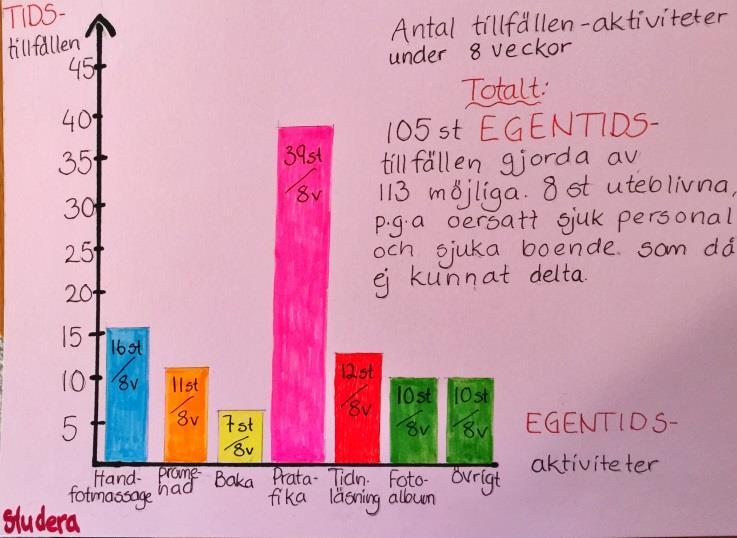 TIDS-
tillfällen
Antal tillfällen-aktiviteter
under 8 veckor
Totalt:
105 st EGENTIDS-
tillfällen gjorda av
113 möjliga. 8 st uteblivna,
p.g.a oersatt sjuk personal
och sjuka boende. som då
ej kunnat delta.
45
40
35
30
25
20
15
10
5
16 st
/8v
11st
/8v
7 st
/8v
39st
/8v
12st
/8v
10 st
/8v
10 st
/8v
Hand-
fotmassage
Prome-
nad
Baka
Prata-
fika
Tidn.
läsning
Foto-
album
övrigt
EGENTIDS-
aktiviteter
Studera